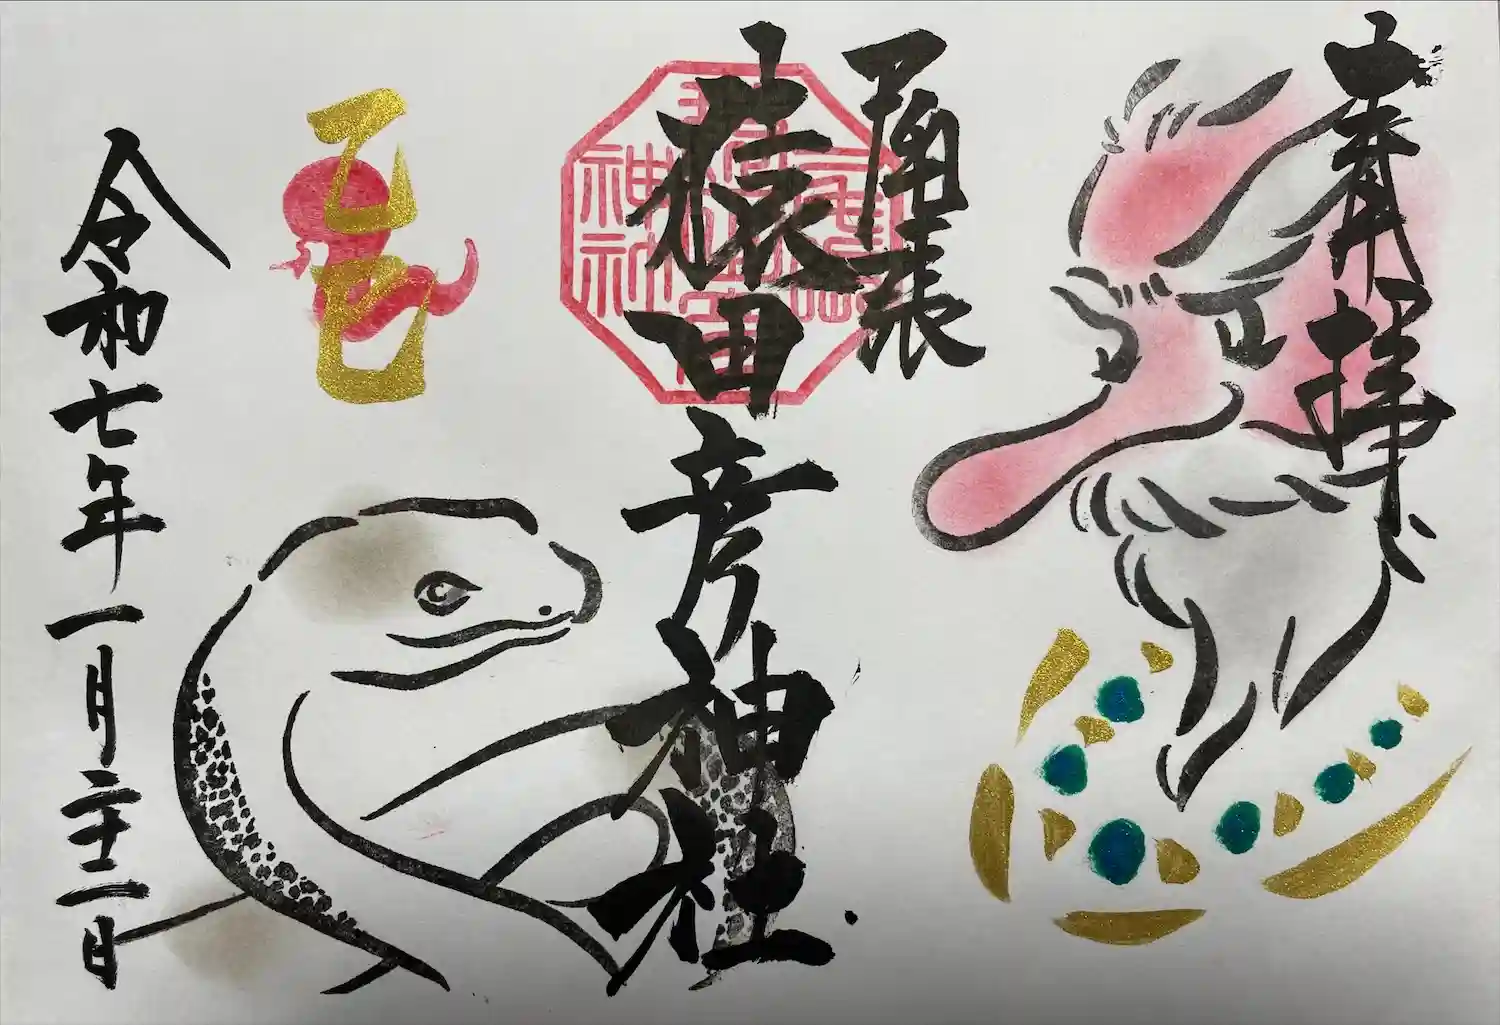 奉拝
尾張
猿田彦神社
神社
乙巳
令和七年一月二十一日